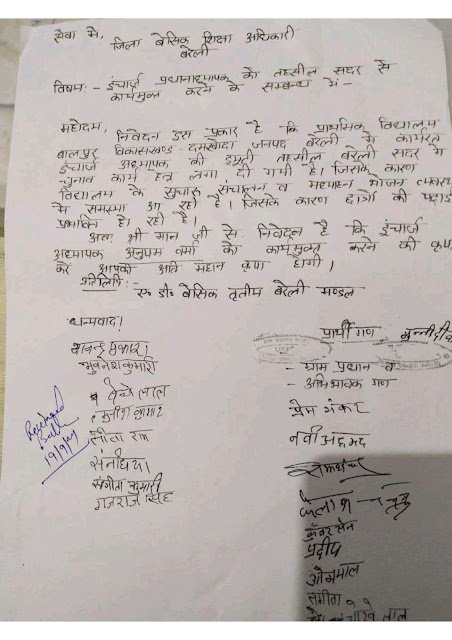 सेवा में,
जिला बेसिक शिक्षा अधिकारी
बरेली
विषय:- इंचार्ज प्रधानाध्यापक को तहसील सदर से
कार्यमुक्त करने के सम्बन्ध में-
महोदय,
निवेदन इस प्रकार है कि प्राथमिक विद्यालय
बालपुर विकासखण्ड- दमखोदा जनपद बरेली में कार्यरत
इंचार्ज अध्यापक की ड्यूटी तहसील बरेली सदर में
चुनाव कार्य हेतु लगा दी गयी है। जिसके कारण
विद्यालय के सुचारु संचालन व मध्याह्न भोजन व्यवस्था
में समस्या आ रही है। जिसके कारण छात्रों की पढ़ाई
प्रभावित हो रही है।
अतः श्री मान जी से निवेदन है कि इंचार्ज
अध्यापक अनुपम वर्मा को कार्यमुक्त करने की कृपा
करें आपकी अति महान कृपा होगी।
प्रतिलिपि:-
स० डी० बेसिक तृतीय बरेली मण्डल
धन्यवाद!
प्रार्थी गण
- ग्राम प्रधान व
- अभिभावक गण
भुवनेश कुमारी
लाल
प्रेम शंकर
कुमार
नवी अहमद
Received
19/9/24
संगीता कुमारी
गजराज सिंह
प्रदीप
ओमपाल
संगीता
लाल